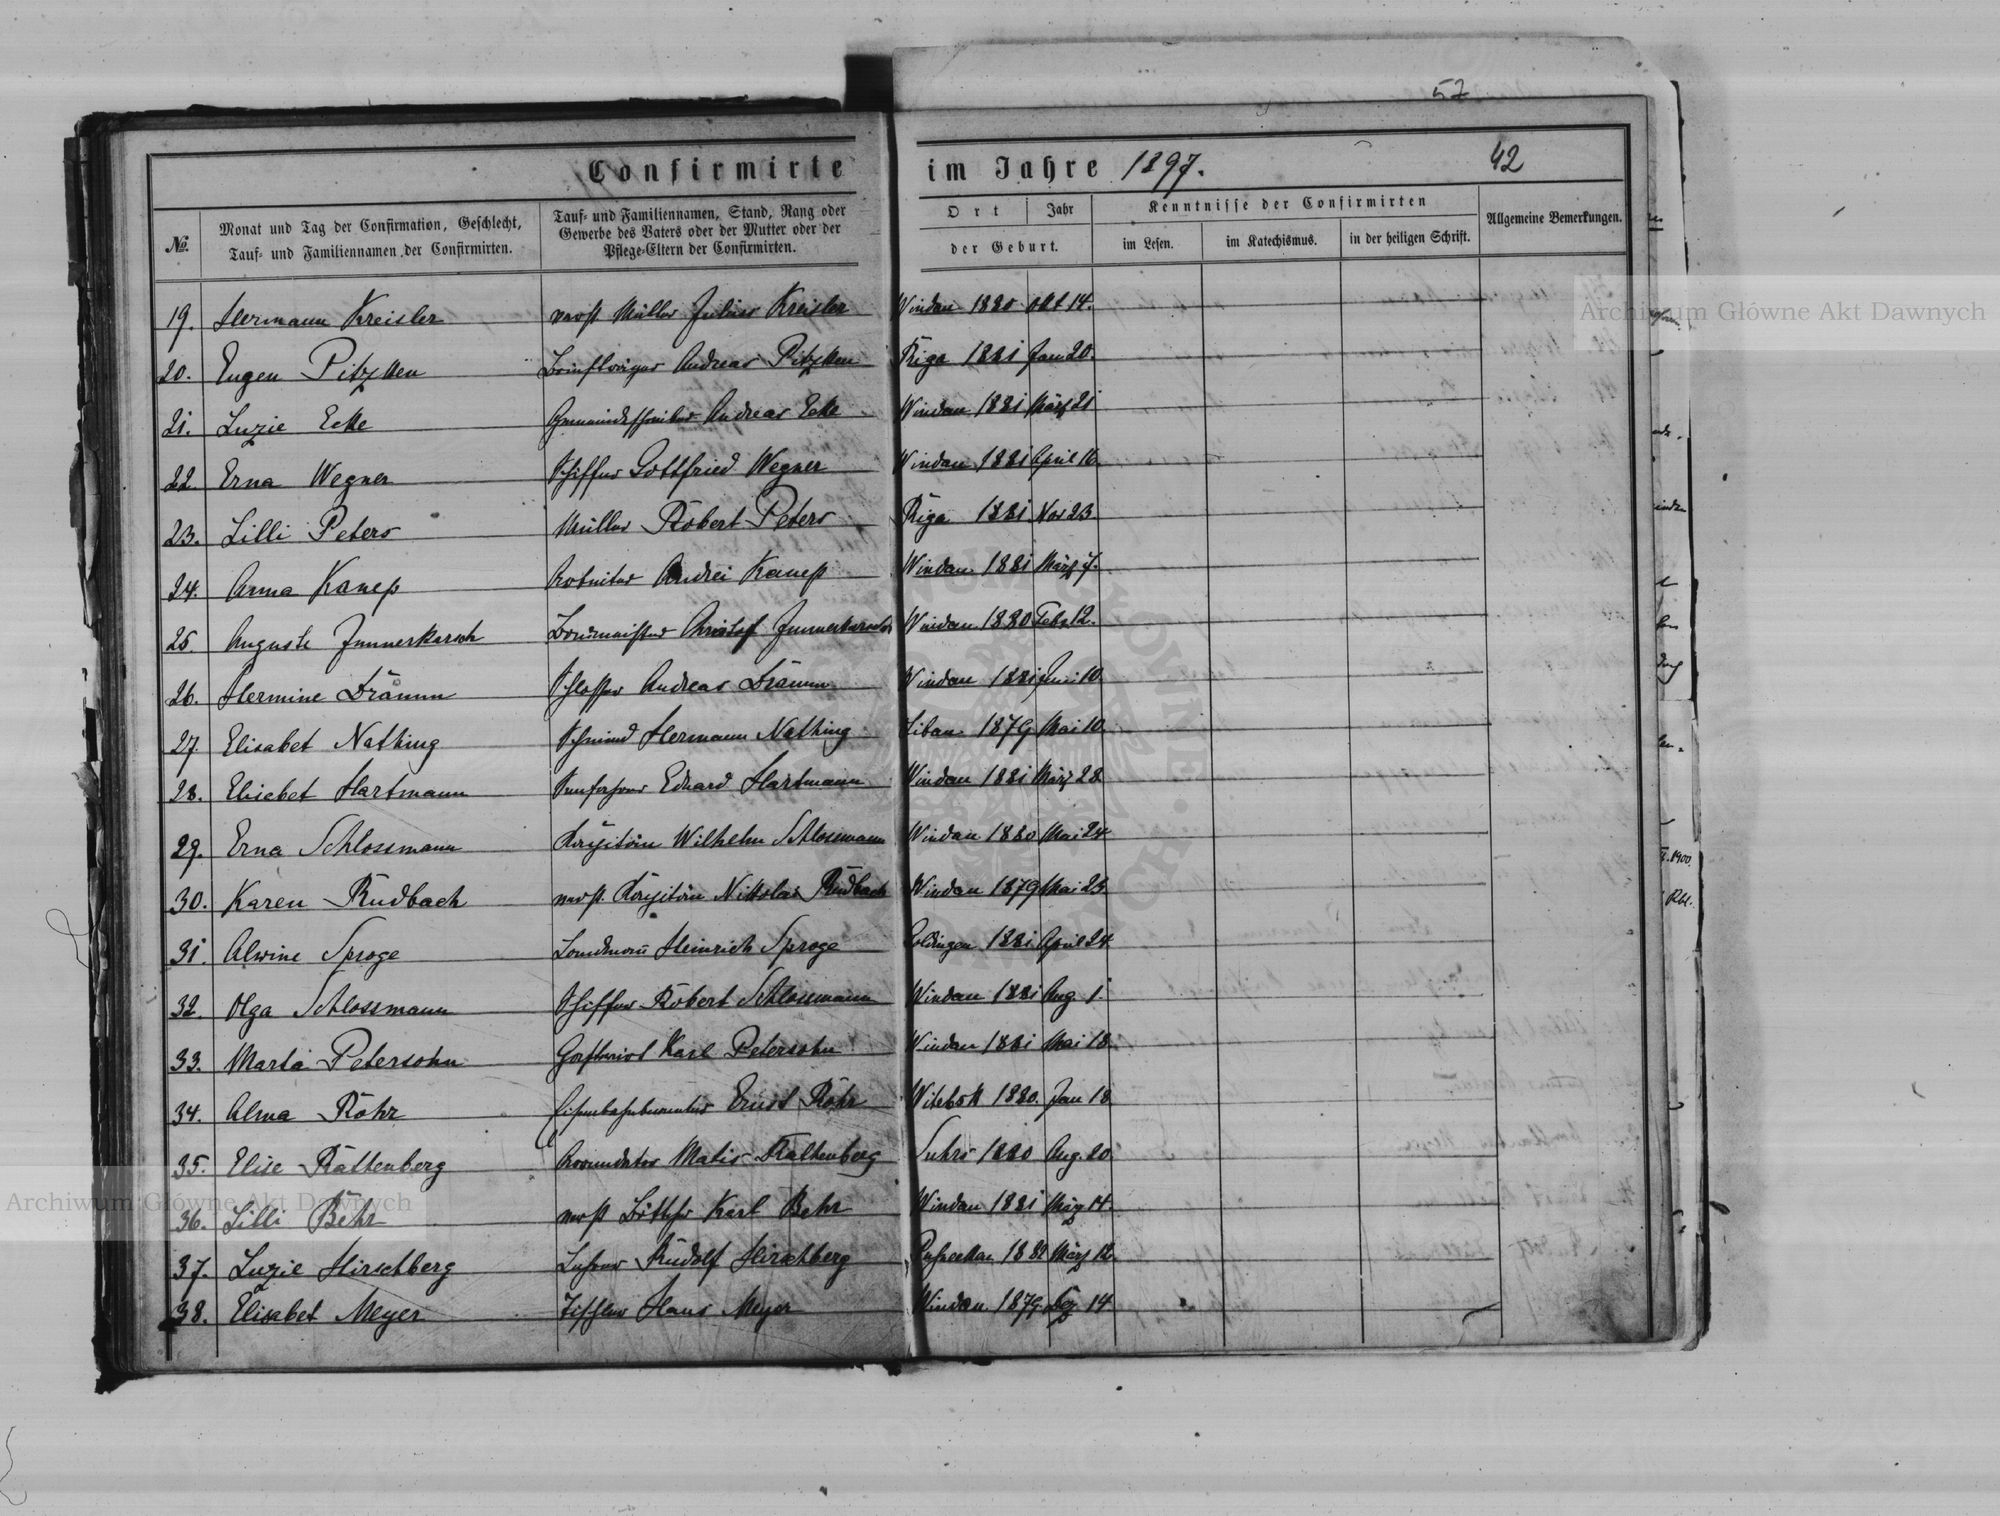 57
Confirmirte im Jahre 1897. 42
No. Monat und Tag der Confirmation, Geschlecht, Tauf- und Familiennamen der Confirmirten. Tauf- und Familiennamen, Stand, Rang oder Gewerbe des Vaters oder der Mutter oder der Pflege-Eltern der Confirmirten. Ort Jahr der Geburt. Kenntnisse der Confirmirten im Lesen. im Katechismus. in der heiligen Schrift. Allgemeine Bemerkungen.
19. Hermann Kreisler verst Müller Julius Kreisler Windau 1880 Okt 14.
20. Eugen Pitzken Briefträger Andreas Pitzken Riga 1881 Jan 20.
21. Luzie Ecke Gemeindeschreiber Andreas Ecke Windau 1881 März 21
22. Erna Wegner Schiffer Gottfried Wegner Windau 1881 April 16.
23. Lilli Peters Müller Robert Peters Riga 1881 Nov 23.
24. Anna Kanep Arbeiter Andrei Kanep Windau 1881 März 7.
25. Auguste Jumerkarsch Christof Windau 1880 Feb. 12.
26. Hermine Drämm Schlosser Andreas Drämm Windau 1881 Juni 10
27. Elisabet Nathing Schmied Hermann Nathing Libau 1879 Mai 10.
28. Elisebet Hartmann Seefahrer Eduard Hartmann Windau 1881 März 28.
29. Erna Schlossmann Kapitän Wilhelm Schlossmann Windau 1880 Mai 24
30. Karen Rudbach verst. Kapitän Nikolas Rudbach Windau 1879 Mai 23
31. Alwine Sproge Landmann Heinrich Sproge Goldingen 1881 April 24
32. Olga Schlossmann Schiffer Robert Schlossmann Windau 1881 Aug. 1.
33. Marta Petersohn Gastwirt Karl Petersohn Windau 1881 Mai 18.
34. Alma Röhr Eisenbahnbeamter Ernst Röhr Witebsk 1880. Jan 18
35. Elise Kaltenberg Arrendator Matis Kaltenberg Suhrs 1880 Aug. 20.
36. Lilli Behr verst Böttcher Karl Behr Windau 1881 März 14.
37. Luzie Hirschberg Lehrer Rudolf Hirschberg März 12
38. Elisabet Meyer Tischler Hans Meyer Windau 1879 Dez 14
1900.
Archiwum Główne Akt Dawnych
Archiwum Główne Akt Dawnych